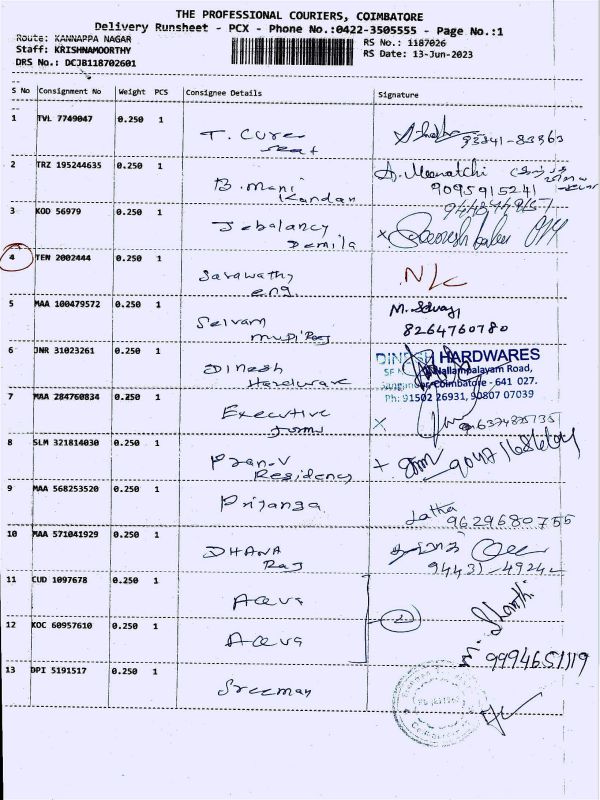 THE PROFESSIONAL COURIERS, COIMBATORE
Delivery Runsheet - PCX - Phone No.:0422-3505555 - Page No.:1
Route: KANNAPPA NAGAR
Staff: KRISHNAMOORTHY
DRS No.: DCJB118702601
RS No.: 1187026
RS Date: 13-Jun-2023
S No Consignment No Weight PCS Consignee Details Signature
1 TVL 7749047 0.250 1 T. Cure
seat
2 TRZ 195244635 0.250 1 B. Mani
Kandan
A. Meenatchi
9095915241
3 KOD 56979 0.250 1 Jebalancy
Demila
4 TEN 2002444 0.250 1 Sarawathy
eng.
N/C
5 MAA 100479572 0.250 1 Selvam
M. Selvaj
8264760780
6 JNR 31023261 0.250 1 Dinesh
Hardware
DINESH HARDWARES
Nallampalayam Road,
Coimbatore - 641 027.
Ph: 91502 26931, 90807 07039
7 MAA 284760834 0.250 1 Executive
8 SLM 321814030 0.250 1 Pran.V
Residency
9 MAA 568253520 0.250 1 Prijanga
Latha
9629680755
10 MAA 571041929 0.250 1 DHANA
Raj
11 CUD 1097678 0.250 1
2
12 KOC 60957610 0.250 1
9994651119
13 DPI 5191517 0.250 1 Sreeman